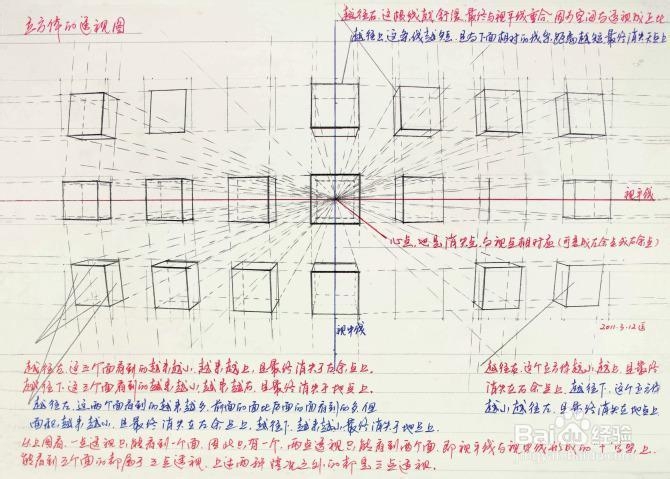 立方体的透视图
越往右,这限线就舒缓,最终与视平线重合,因为空间与透视成正比
越往上,这条线越短,且与下面相对的线条距离越短,最终消失天点上
视平线
心点,也是消失点,与视点相对应(可变成左余点或右余点)
视中线
2011.3.12
越往左,这三个面看到的越来越小,越来越上,且最终消失于左余点上。
越往下,这三个面看到的越来越小,越来越右,且最终消失于地点上。
越往左,这两个面看到的越来越多,前面的面比后面的面看到的多,但
面积越来越小,且最终消失在左余点上,越往下,越来越小,最终消失于地点上。
越往右,这个立方体就越小,越上,且最终
消失在右余点上,越往下,这个立方体
越小,越往左,且最终消失在地点上
以上图看,一点透视只能看到一个面,因此只有一个,两点透视只能看到两个面,即视平线与视中线形成的十字架上,
能看到三个面的都属于三点透视,上述两种情况之外的都是三点透视。
Baidu 经验